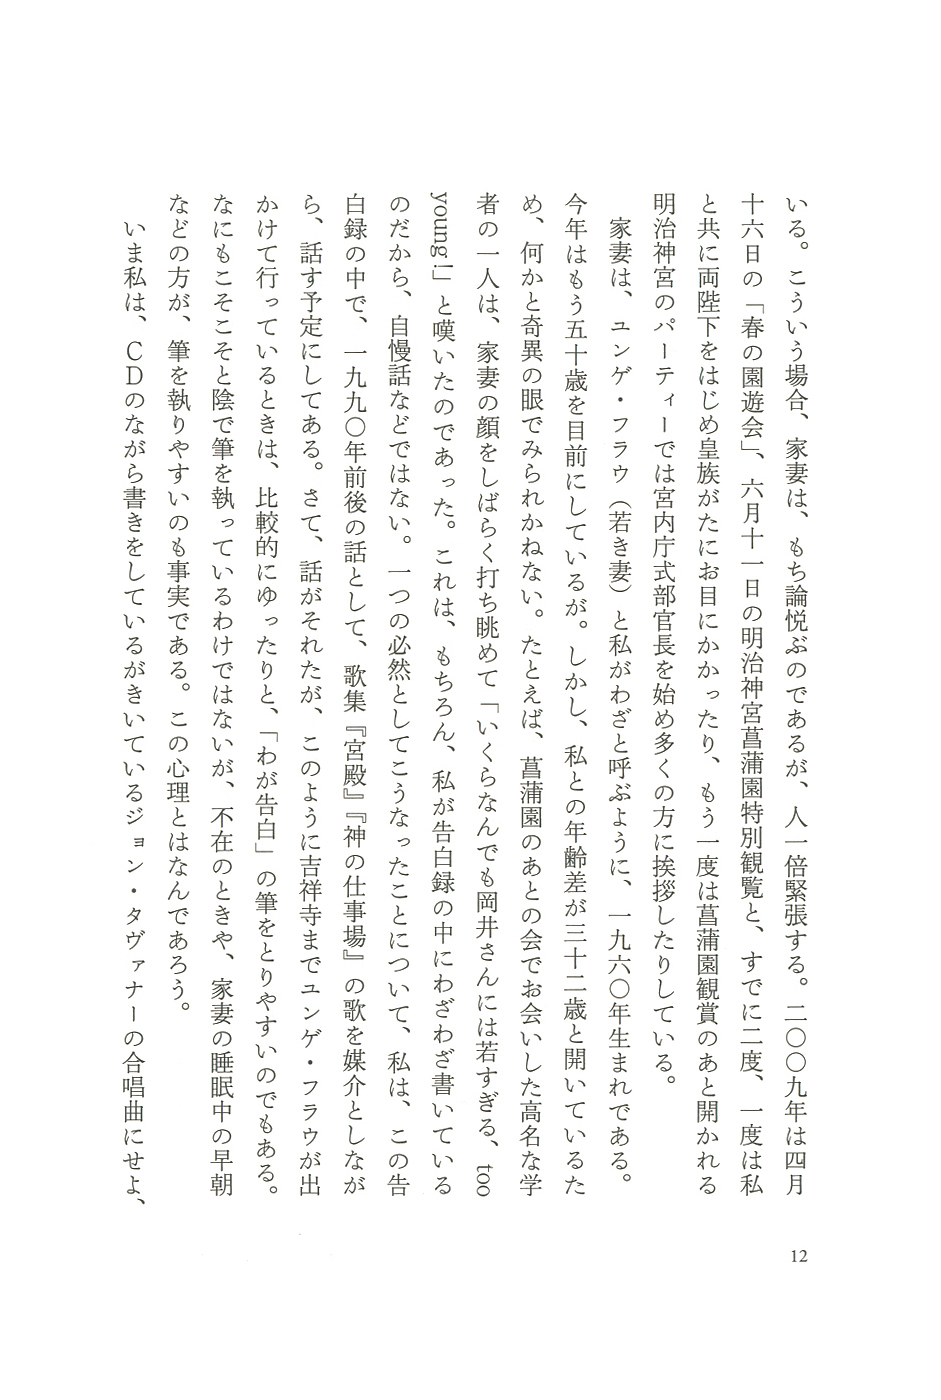 いる。こういう場合、家妻は、もち論悦ぶのであるが、人一倍緊張する。二〇〇九年は四月
十六日の「春の園遊会」、六月十一日の明治神宮菖蒲園特別観覧と、すでに二度、一度は私
と共に両陛下をはじめ皇族がたにお目にかかったり、もう一度は菖蒲園観賞のあと開かれる
明治神宮のパーティーでは宮内庁式部官長を始め多くの方に挨拶したりしている。
　家妻は、ユンゲ・フラウ（若き妻）と私がわざと呼ぶように、一九六〇年生まれである。
今年はもう五十歳を目前にしているが。しかし、私との年齢差が三十二歳と開いているた
め、何かと奇異の眼でみられかねない。たとえば、菖蒲園のあとの会でお会いした高名な学
者の一人は、家妻の顔をしばらく打ち眺めて「いくらなんでも岡井さんには若すぎる、too
young!」と嘆いたのであった。これは、もちろん、私が告白録の中にわざわざ書いている
のだから、自慢話などではない。一つの必然としてこうなったことについて、私は、この告
白録の中で、一九九〇年前後の話として、歌集『宮殿』『神の仕事場』の歌を媒介としなが
ら、話す予定にしてある。さて、話がそれたが、このように吉祥寺までユンゲ・フラウが出
かけて行っているときは、比較的にゆったりと、「わが告白」の筆をとりやすいのでもある。
なにもこそこそと陰で筆を執っているわけではないが、不在のときや、家妻の睡眠中の早朝
などの方が、筆を執りやすいのも事実である。この心理とはなんであろう。
　いま私は、ＣＤのながら書きをしているがきいているジョン・タヴァナーの合唱曲にせよ、
12